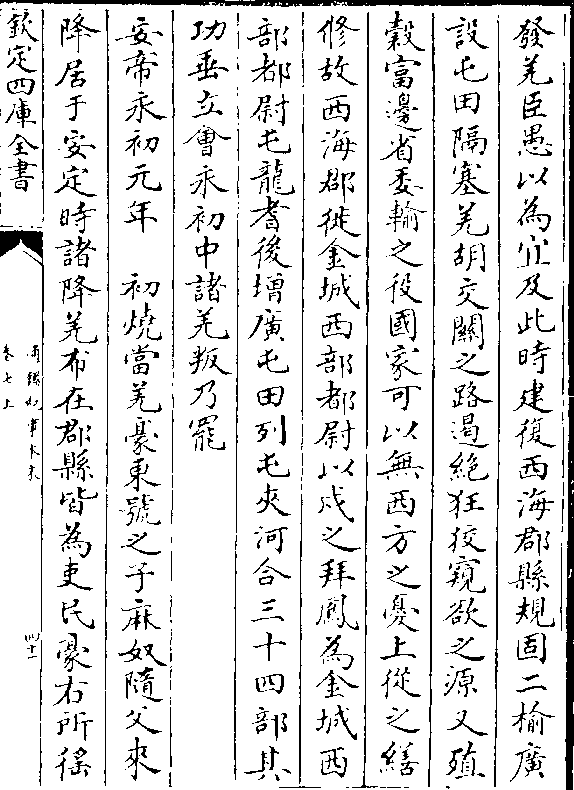 發羌臣愚以為宜及此時建復西海郡縣規固二榆廣
設屯田隔塞羌胡交關之路遏絶狂狡窺欲之源又殖
穀富邊省委輸之役國家可以無西方之憂上從之繕
修故西海郡徙金城西部都尉以戍之拜鳳為金城西
部都尉屯龍耆後增廣屯田列屯夾河合三十四部其
功垂立會永初中諸羌叛乃罷
安帝永初元年　初燒當羌豪東號之子麻奴隨父來
降居于安定時諸降羌布在郡縣皆為吏民豪右所徭
欽定四庫全書
通鑑紀事本末
卷七上
四十一